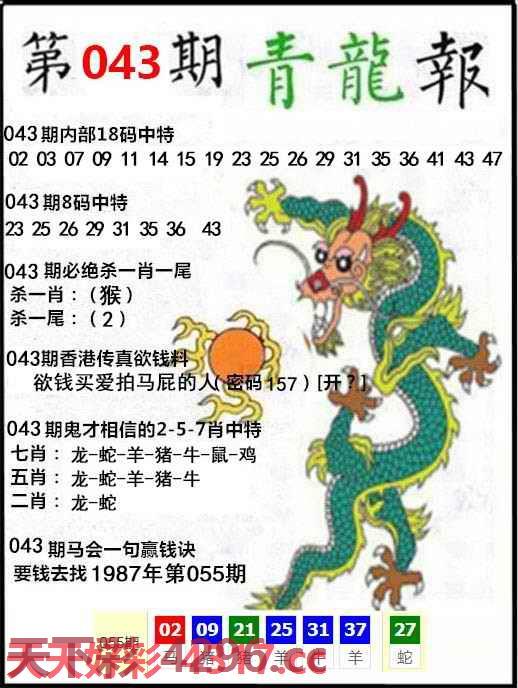 第043期青龍報
043期内部18码中特
02 03 07 09 11 14 15 19 23 25 26 29 31 35 36 41 43 47
043期8码中特
23 25 26 29 31 35 36 43
043 期必绝杀一肖一尾
杀一肖：（猴）
杀一尾：（2）
043期香港传真欲钱料
欲钱买爱拍马屁的人(密码157）[开？]
043期鬼才相信的2-5-7肖中特
七肖：龙-蛇-羊-猪-牛-鼠-鸡
五肖：龙-蛇-羊-猪-牛
二肖：龙-蛇
043 期马会一句赢钱诀
要钱去找1987年第055期
055期 02 09 21 25 31 37 27
猪 猪 羊 牛 羊 蛇
天下好彩44296.cc